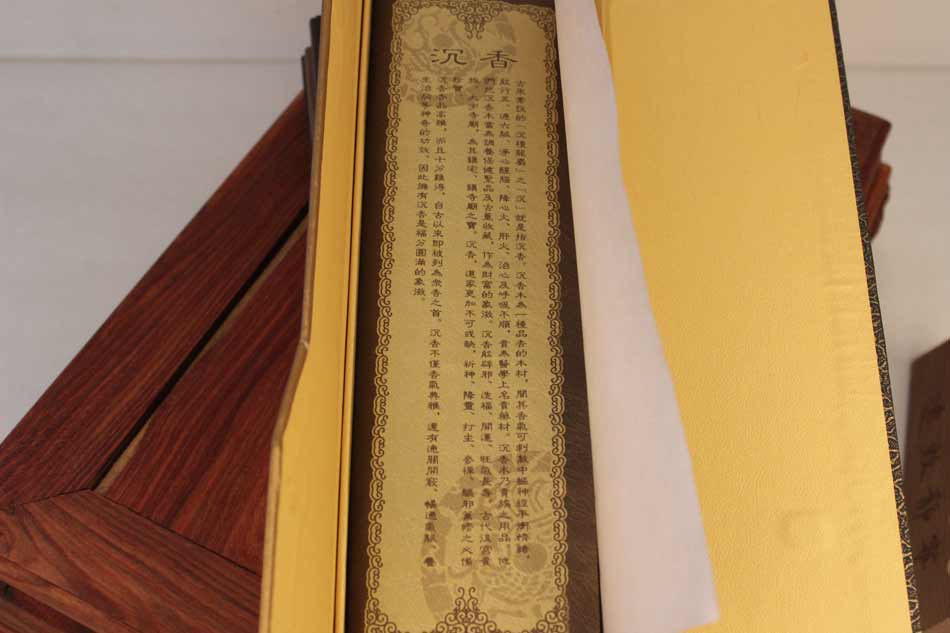 沉香
古來素說的「沉檀龍麝」之「沉」就是指沉香。沉香木為一種品香的木材,聞其香氣可刺激中樞神經平衡情緒,
致行五、通六脈、淨心醒腦、降心火、肝火、治心及呼吸不順,貴為醫學上名貴藥材。沉香木乃貴族之用品。他
們把沉香木當為調養保健聖品及古董收藏,作為財富的象徵。沉香能辟邪、造福、開運、旺氣長壽。古代皇宮貴
族、大小寺廟,為其鎮宅、鎮寺廟之寶。沉香,道家更加不可或缺,祈神、降靈、打坐、參禪、驅邪
珍寶。
沉香香品高雅,而且十分難得,自古以來即被列為眾香之首。沉香不僅香氣典雅,還有通關開竅、暢通氣脈、養
生治病等神奇的功效。因此擁有沉香是福分圓滿的象徵。